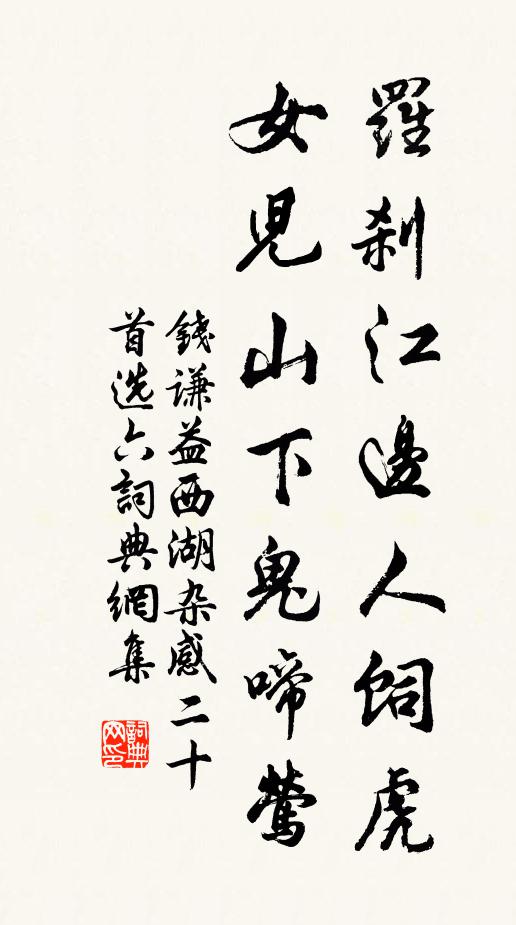 羅剎江邊人飼虎
女兒山下鬼啼鶯
錢謙益西湖杂感二十
首选六詞典網集
詞典
网印